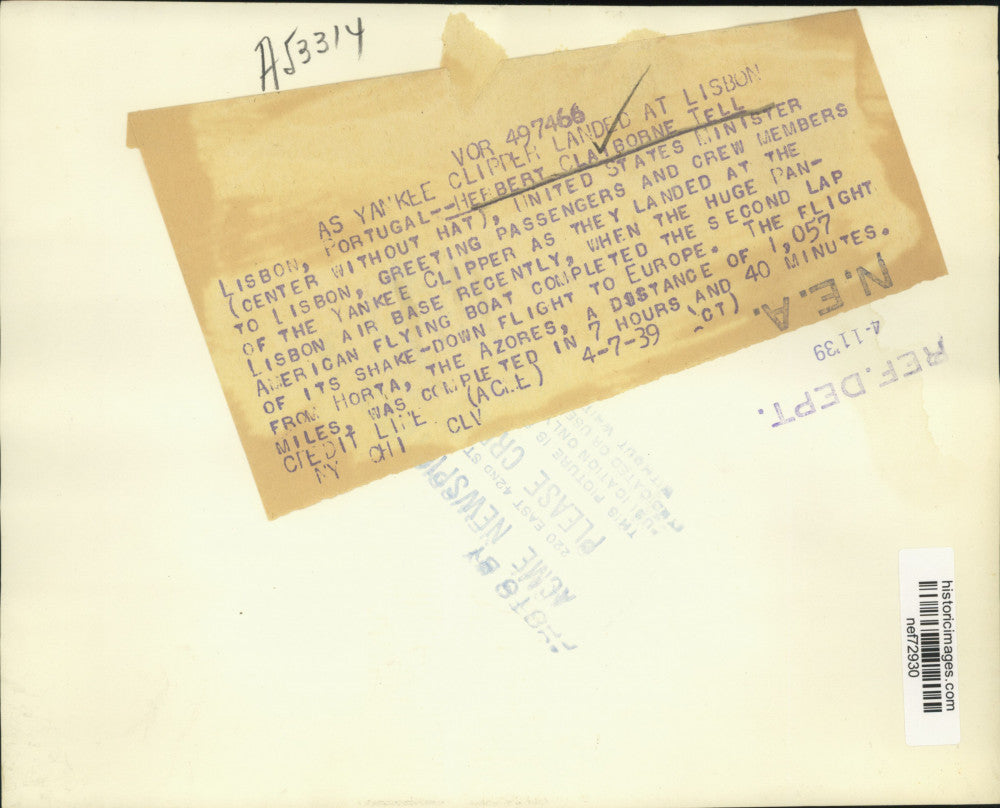 A53314
VOR 497466
AS YANKEE CLIPPER LANDED AT LISBON
LISBON, PORTUGAL--HERBERT CLAIBORNE PELL
(CENTER WITHOUT HAT), UNITED STATES MINISTER
TO LISBON, GREETING PASSENGERS AND CREW MEMBERS
OF THE YANKEE CLIPPER AS THEY LANDED AT THE
LISBON AIR BASE RECENTLY, WHEN THE HUGE PAN-
AMERICAN FLYING BOAT COMPLETED THE SECOND LAP
OF ITS SHAKE-DOWN FLIGHT TO EUROPE. THE FLIGHT
FROM HORTA, THE AZORES, A DISTANCE OF 1,057
MILES, WAS COMPLETED IN 7 HOURS AND 40 MINUTES.
CREDIT LINE (ACME) 4-7-39 (CT)
NY CHI CLV
N.E.A.
4-11 '39
REF. DEPT.
PHOTO BY
ACME NEWSPI
220 EAST 42ND ST
PLEASE CR
THIS PICTURE IS
PUBLICATION ONLY
WITHOUT WRIT
historicimages.com
nef72930